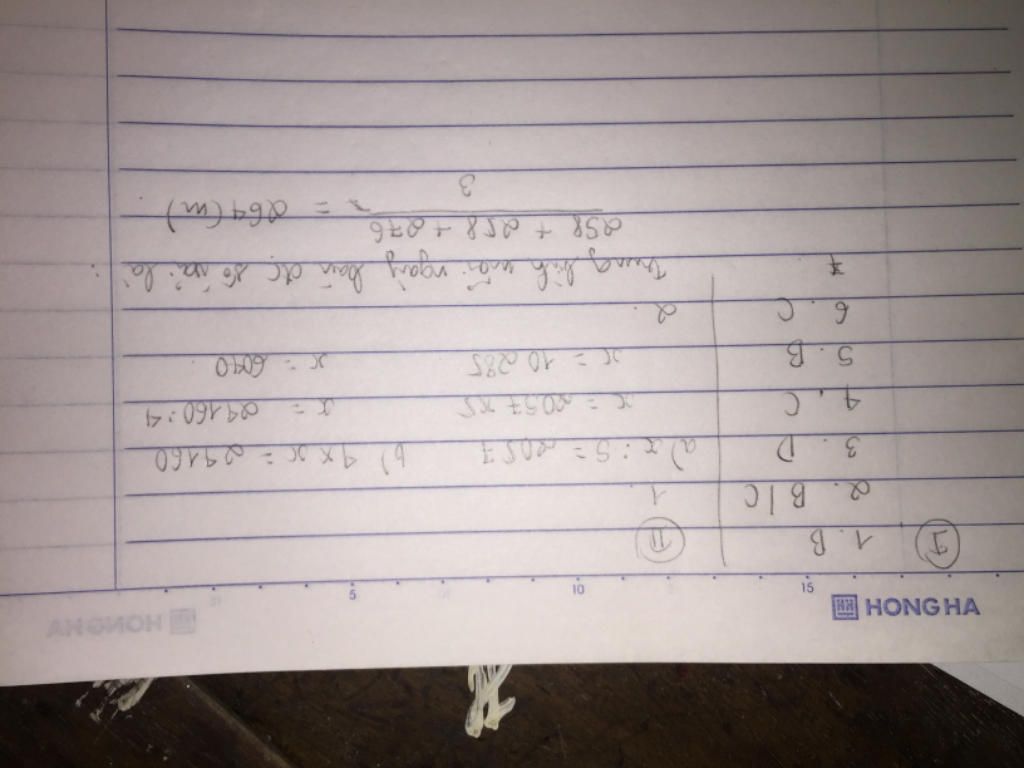 HONG HA
15 10 5
I
1. B
2. B/C
3. D
4. C
5. B
6. C
7
II
1.
a) x : 5 = 2057 b) 4 x x = 24160
x = 2057 x 5 x = 24160 : 4
x = 10285 x = 6040
2.
Trung bình mỗi ngày bán đc số vải là :
258 + 258 + 276
3
= 264 (m)